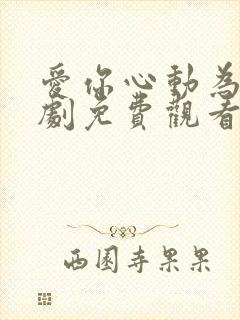 愛你心動為
劇免費觀看
西園寺果果